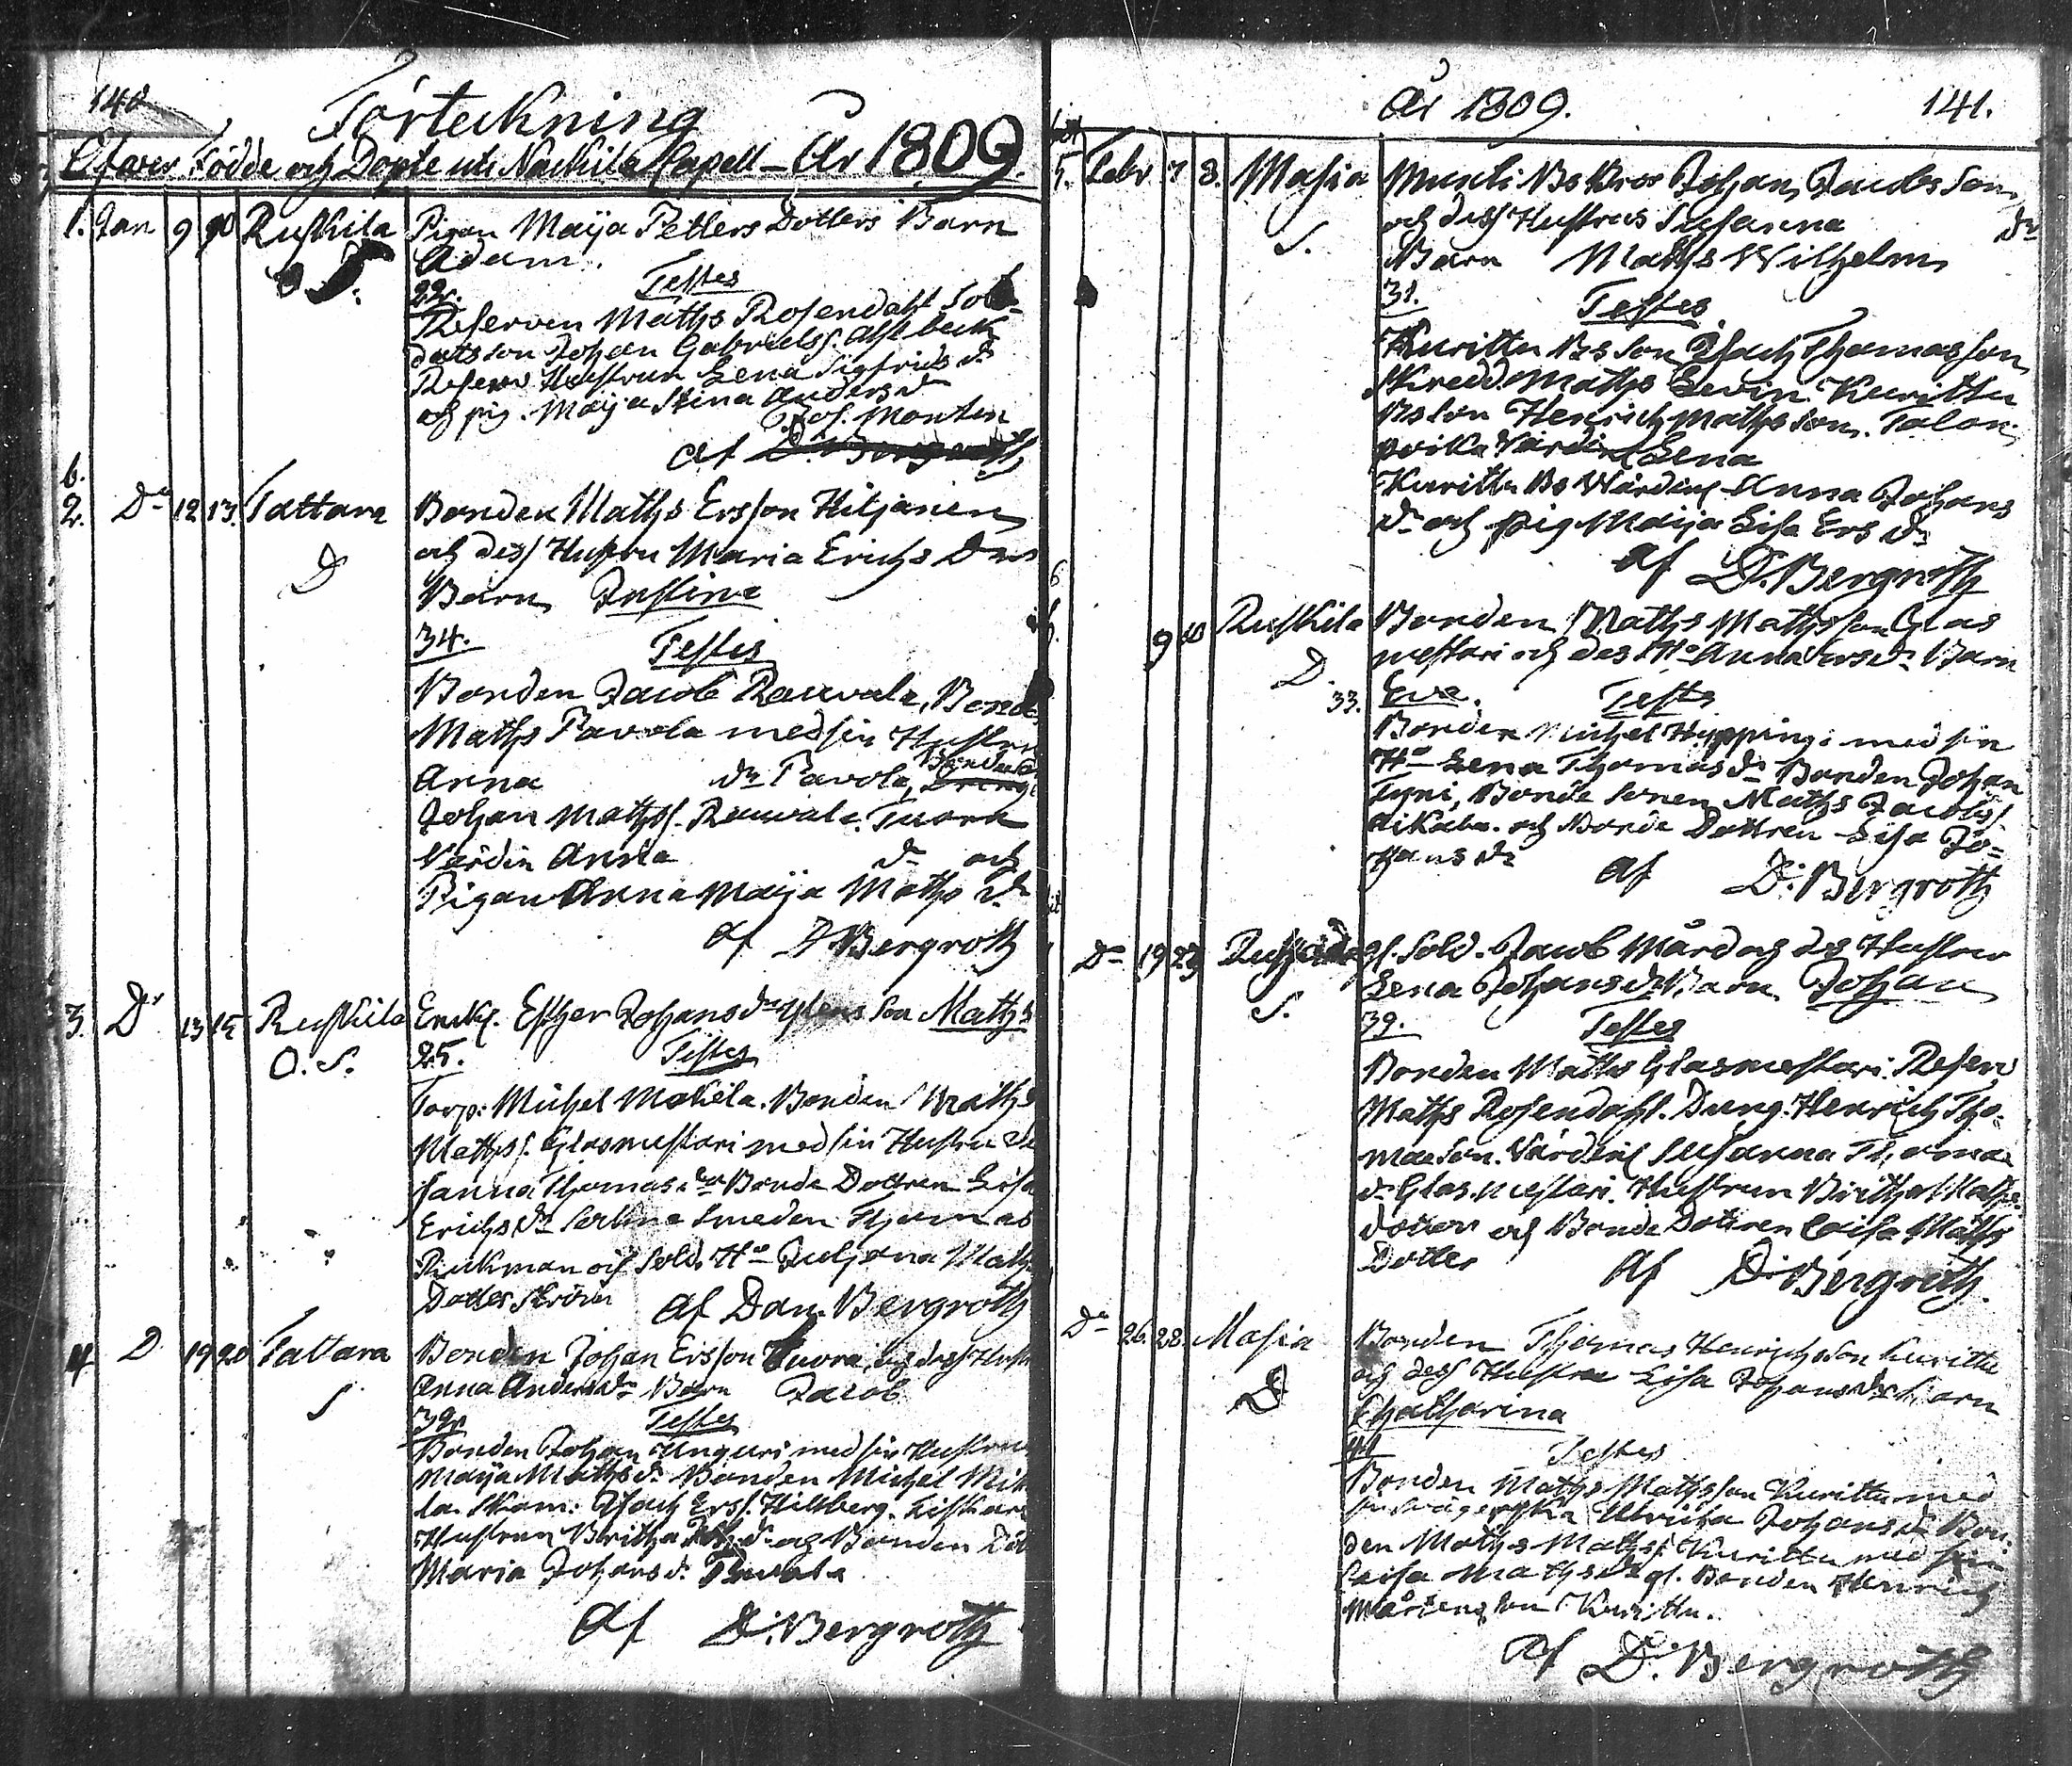 140
Förteckning
Öfwer Födde och Döpte uti Nackila Capell – År 1809.
1. Jan 9 10 Ruskila Pigan Maija Petters Dotters Barn
S. Adam.
22. Testes
Reserven Maths Rosendahl Sol-
dats son Johan Gabrielss. Ahlbeck
Reserv Hustrun Lena Sigfrids dr
och pig. Maija Stina Anders dr
Jos. Monten
af D. Bergroth
6.
2. Do 12 13. Tattara Bonden Maths Ersson Hiljanen
och dess Hustru Maria Erichs Drs
D Barn Justina
34. Testes
Bonden Jacob Rauvala, Bonden
Maths Pavola med sin Hustru
Anna dr Pavola, Bondeson Dreng
Johan Mathss. Rauvala. Tuora
Värdin Anna dr och
Pigan Anna Maija Maths dr
af D Bergroth
3. Do 13 15 Ruskila Enck. Esther Johans dr Son Maths
O. S. 25. Testes
Torp: Michel Makila. Bonden Maths
Mathss. Glasmestari med sin Hustru Su
sanna Thomas dr Bonde Dottren Lisa
Erichs dr Smeden Thomas
Ruckman och Sold. Ho Juljana Maths
Dotter Ström af Dan. Bergroth
4 D 19 20 Tattara Bonden Johan Ersson Tuora och dess Hust
S Anna Anders dr Barn Jacob
39 Testes
Bonden Johan Unguri med sin Hustru
Maija Maths dr Bonden Michel Mik
la. Isach Erss. Hillberg.
Hustrun Britha dr och Bonden Dot
Maria Johans dr
af D. Bergroth
År 1809. 141.
5. Febr 7 8. Masia Munti Bs Bror Johan Jacobs Son
och dess Hustrus Susanna dr
S. Barn Maths Wilhelm
31. Testes
Kuritta Bs Son Isach Thomasson
Skredd. Maths Levin. Kuritta
Bs Son Henrich Mathsson. Talon
poika Värdin Lena
Kuritta Bs Värdin Anna Johans
dr och pig Maija Lisa Ers dr
af D. Bergroth
9 10 Ruskila Bonden Maths Mathsson Glas
mestari och des Ho Anna Ers dr Barn
D. 33. Eva. Testes
Bonden Michel Hypping: med sin
Ho Lena Thomas dr Bonden Johan
Tyni, Bonde Sonen Maths Jacobss
och Bonde Dottren Lisa Jo-
hans dr af D. Bergroth
Do 19 23 Ruskila gl. Sold. Jacob Mård och des Hustru
S. Lena Johans dr Barn Johan
39. Testes
Bonden Maths Glasmestari. Reserv
Maths Rosendahl. Dreng. Henrich Tho-
masson. Värdin Susanna Thomas
dr Glasmestari. Hustrun Britha Maths
dotter och Bonde Dottren Caisa Maths
Dotter af D. Bergroth.
Do 26. 28. Masia Bonden Thomas Henrichsson Kuritta
och dess Hustru Lisa Johans dr Barn
D Chatharina
41 Testes
Bonden Maths Mathsson Kuritta med
sin Ulrica Johans dr Bon-
den Maths Mathss. Kuritta med sin
Caisa Maths dr gl. Bonden Henrich
Mårtensson Kuritta.
af D. Bergroth